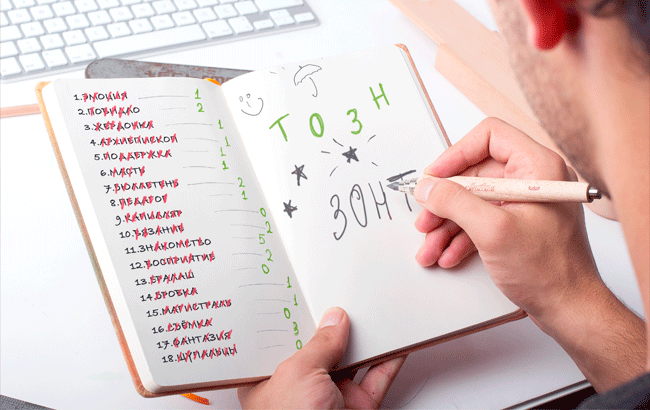 1.ЭМОЦИЯ 1
2.ПОВИДЛО 2
3.ЖЕРДОЧКА 1
4.АРХИЕПИСКОП 1
5.ПОДДЕРЖКА 1
6.МАСТЬ 1
7.БЮЛЛЕТЕНЬ 2
8.ПЕДАГОГ 1
9.КАПИЛЛЯР 0
10.ВЯЗАНИЕ 2
11.ЗНАКОМСТВО 5
12.ВОСПРИЯТИЕ 2
13.ЕРАЛАШ 0
14.БРОВКА 1
15.МАГИСТРАЛЬ 1
16.СЪЁМКА 0
17.ФАНТАЗИЯ 3
18.ЩУПАЛЬЦЫ 0
ТОЗН
ЗОНТ